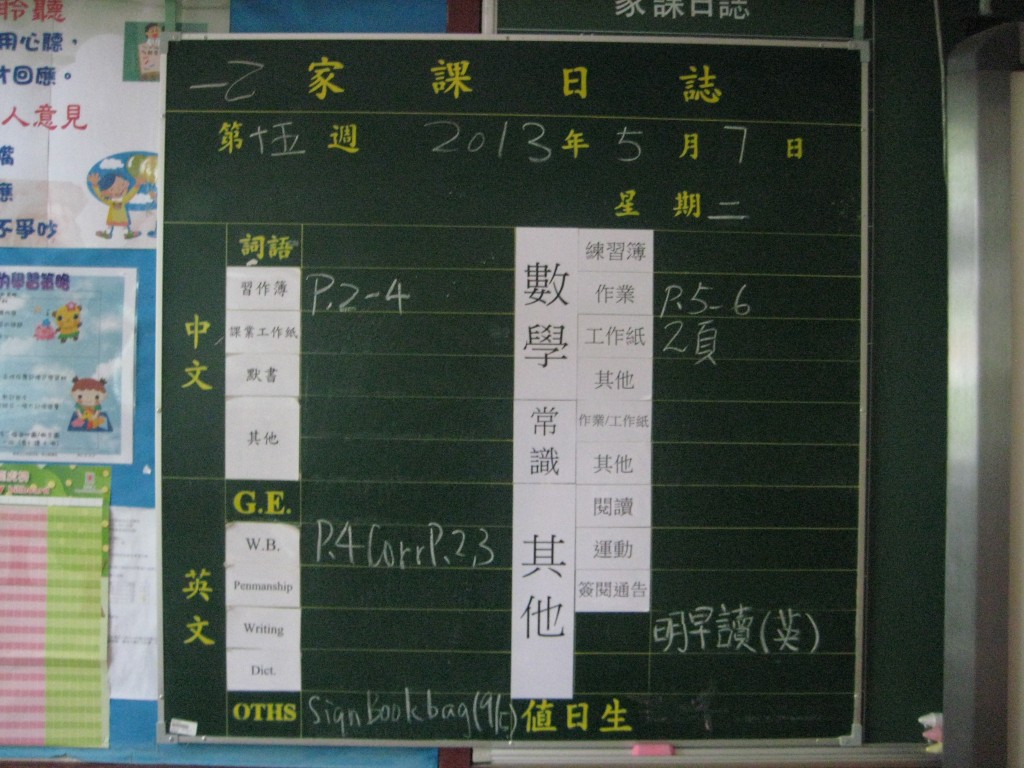 家課日誌
聆聽
用心聽，
才回應。
人意見
嘴
應
不爭吵
的學習策略
一乙 家課日誌
第十五週 2013年5月7日
星期二
中文
詞語
習作簿 P.2-4
課業工作紙
默書
其他
英文
G.E.
W.B. P.4 Corr P.2,3
Penmanship
Writing
Dict.
OTHS Sign Book bag (9/5)
數學
練習簿
作業 P.5-6
工作紙 2頁
其他
常識
作業/工作紙
其他
其他
閱讀
運動
簽閱通告
明早讀(英)
值日生